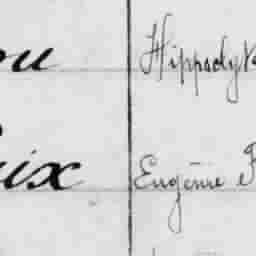 ou Hippolyte
ix Eugénie F